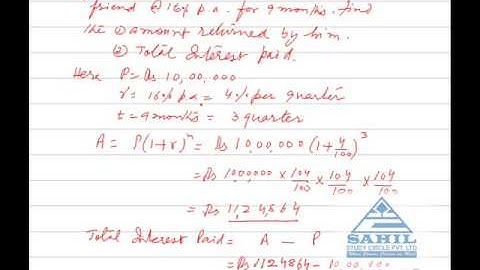 friend @ 16% p.a. for 9 months. find
the ① amount returned by him.
② Total Interest paid.
Here P = Rs 10,00,000
r = 16% p.a. = 4% per quarter
t = 9 months = 3 quarter
A = P(1+r)^n = Rs 10,00,000 (1+4/100)^3
= Rs 1000000 × 104/100 × 104/100 × 104/100
= Rs 11,24,864
Total Interest Paid = A – P
= Rs 1124864 – 10,00,000
SAHIL
STUDY CIRCLE PVT. LTD